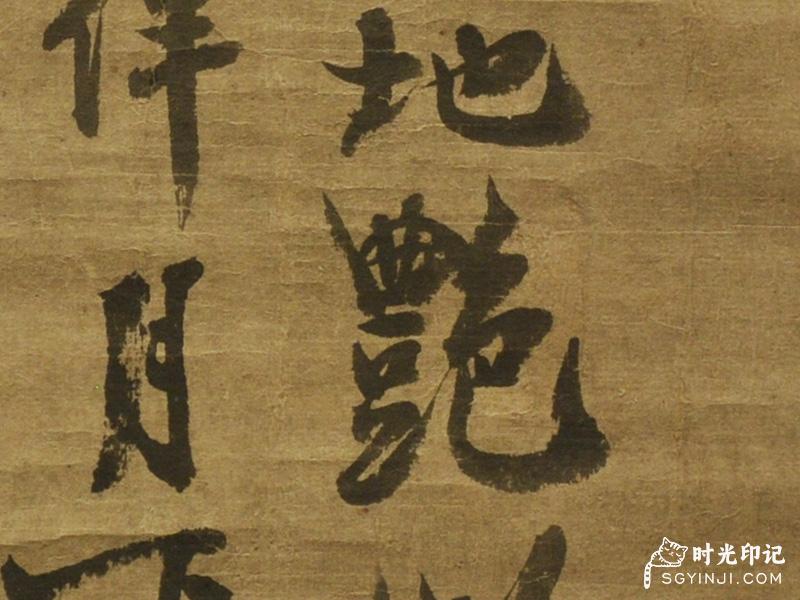 地艷
伴月下
时光印记
SGYINJI.COM